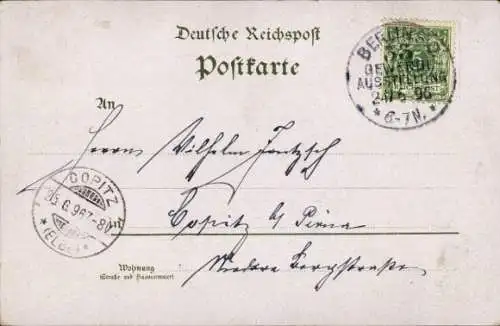 Deutsche Reichspost
Postkarte
BERLIN S.O.
GEWERBE
AUSSTELLUNG
24/6 96
* 6-7N. *
An
Herrn Wilhelm Jentzsch
COPITZ
25.6.96.7-8N
* (ELBE) *
Copitz b/ Pirna
Niedere Bergstraße
Wohnung
(Straße und Hausnummer)